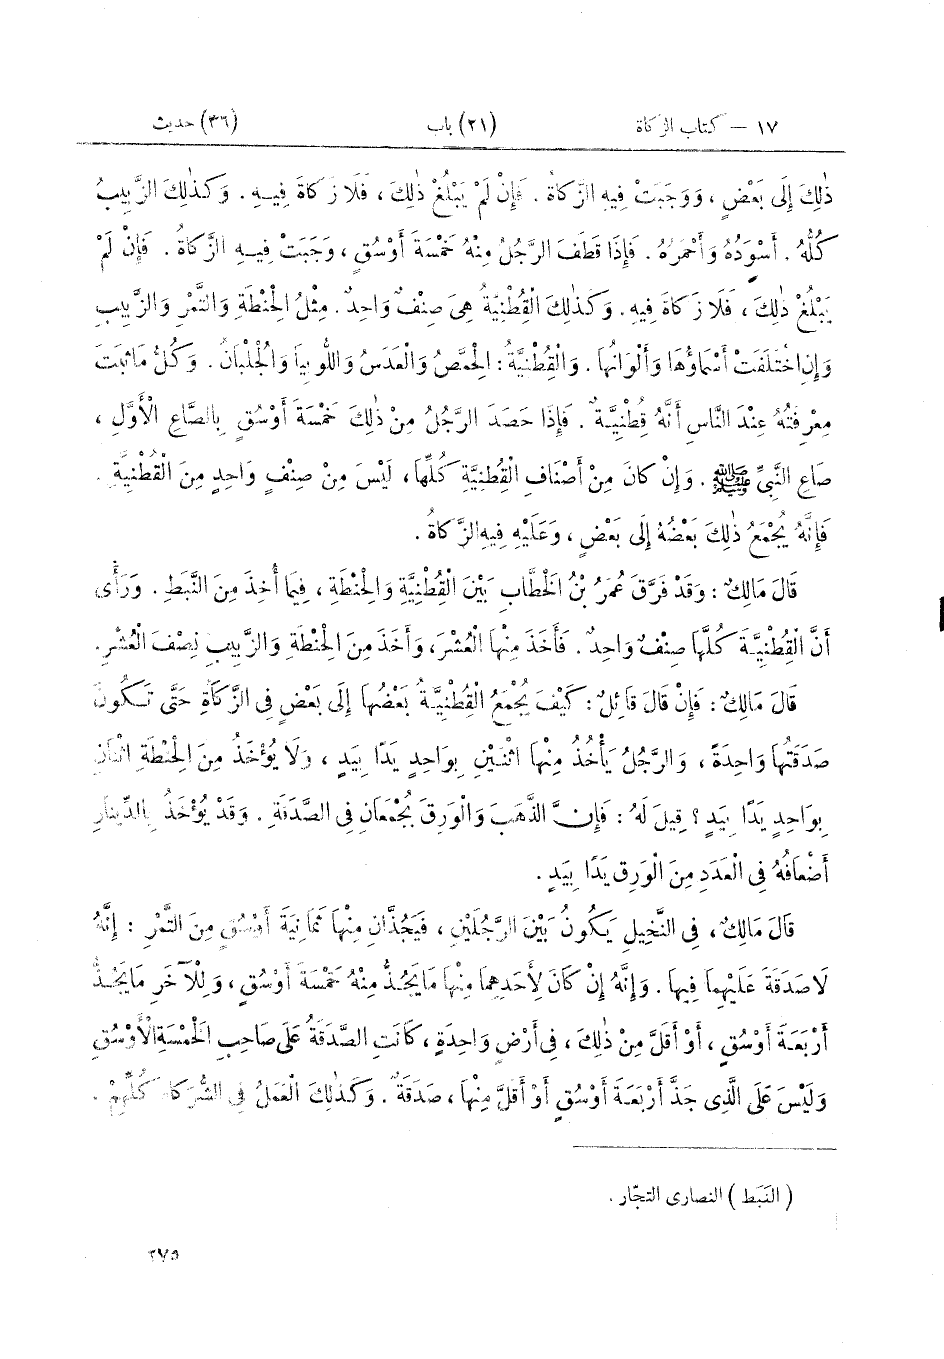 ١٧ – كتاب الزكاة (٢١) باب (٣٦) حديث
ذٰلِكَ إِلَى بَعْضٍ ، وَوَجَبَتْ فِيهِ الزَّكَاةُ . فَإِنْ لَمْ يَبْلُغْ ذٰلِكَ ، فَلَا زَكَاةَ فِيهِ . وَكَذٰلِكَ الزَّبِيبُ
كُلُّهُ . أَسْوَدُهُ وَأَحْمَرُهُ . فَإِذَا قَطَفَ الرَّجُلُ مِنْهُ خَمْسَةَ أَوْسُقٍ ، وَجَبَتْ فِيهِ الزَّكَاةُ . فَإِنْ لَمْ
يَبْلُغْ ذٰلِكَ ، فَلَا زَكَاةَ فِيهِ . وَكَذٰلِكَ الْقِطْنِيَّةُ هِىَ صِنْفٌ وَاحِدٌ . مِثْلُ الْحِنْطَةِ وَالتَّمْرِ وَالزَّبِيبِ
وَإِنِ اخْتَلَفَتْ أَسْمَاؤُهَا وَأَلْوَانُهَا . وَالْقِطْنِيَّةُ : الْحِمَّصُ وَالْعَدَسُ وَاللُّوبِيَا وَالْجُلْبَانُ . وَكُلُّ مَا ثَبَتَ
مَعْرِفَتُهُ عِنْدَ النَّاسِ أَنَّهُ قِطْنِيَّةٌ . فَإِذَا حَصَدَ الرَّجُلُ مِنْ ذٰلِكَ خَمْسَةَ أَوْسُقٍ بِالصَّاعِ الْأَوَّلِ ،
صَاعِ النَّبِىِّ ﷺ . وَإِنْ كَانَ مِنْ أَصْنَافِ الْقِطْنِيَّةِ كُلِّهَا ، لَيْسَ مِنْ صِنْفٍ وَاحِدٍ مِنَ الْقُطْنِيَّةِ .
فَإِنَّهُ يُجْمَعُ ذٰلِكَ بَعْضُهُ إِلَى بَعْضٍ ، وَعَلَيْهِ فِيهِ الزَّكَاةُ .
قَالَ مَالِكٌ : وَقَدْ فَرَّقَ عُمَرُ بْنُ الْخَطَّابِ بَيْنَ الْقُطْنِيَّةِ وَالْحِنْطَةِ ، فِيمَا أُخِذَ مِنَ النَّبَطِ . وَرَأَى
أَنَّ الْقِطْنِيَّةَ كُلَّهَا صِنْفٌ وَاحِدٌ . فَأَخَذَ مِنْهَا الْعُشْرَ، وَأَخَذَ مِنَ الْحِنْطَةِ وَالزَّبِيبِ نِصْفَ الْعُشْرِ.
قَالَ مَالِكٌ : فَإِنْ قَالَ قَائِلٌ : كَيْفَ يُجْمَعُ الْقِطْنِيَّةُ بَعْضُهَا إِلَى بَعْضٍ فِى الزَّكَاةِ حَتَّى تَكُونَ
صَدَقَتُهَا وَاحِدَةً ، وَالرَّجُلُ يَأْخُذُ مِنْهَا اثْنَيْنِ بِوَاحِدٍ يَدًا بِيَدٍ ، وَلَا يُؤْخَذُ مِنَ الْحِنْطَةِ اثْنَانِ
بِوَاحِدٍ يَدًا بِيَدٍ ؟ قِيلَ لَهُ : فَإِنَّ الذَّهَبَ وَالْوَرِقَ يُجْمَعَانِ فِى الصَّدَقَةِ . وَقَدْ يُؤْخَذُ بِالدِّينَارِ
أَضْعَافُهُ فِى الْعَدَدِ مِنَ الْوَرِقِ يَدًا بِيَدٍ .
قَالَ مَالِكٌ ، فِى النَّخِيلِ يَكُونُ بَيْنَ الرَّجُلَيْنِ ، فَيَجُذَّانِ مِنْهَا ثَمَانِيَةَ أَوْسُقٍ مِنَ التَّمْرِ : إِنَّهُ
لَا صَدَقَةَ عَلَيْهِمَا فِيهَا . وَإِنَّهُ إِنْ كَانَ لِأَحَدِهِمَا مِنْهَا مَا يَجُذُّ مِنْهُ خَمْسَةَ أَوْسُقٍ ، وَلِلْآخَرِ مَا يَجُذُّ
أَرْبَعَةَ أَوْسُقٍ ، أَوْ أَقَلَّ مِنْ ذٰلِكَ ، فِى أَرْضٍ وَاحِدَةٍ ، كَانَتِ الصَّدَقَةُ عَلَى صَاحِبِ الْخَمْسَةِ الْأَوْسُقِ
وَلَيْسَ عَلَى الَّذِى جَذَّ أَرْبَعَةَ أَوْسُقٍ أَوْ أَقَلَّ مِنْهَا ، صَدَقَةٌ . وَكَذٰلِكَ الْعَمَلُ فِى الشُّرَكَاءِ كُلِّهِمْ .
( النَبَط ) النصارى التجّار .
٢٧٥